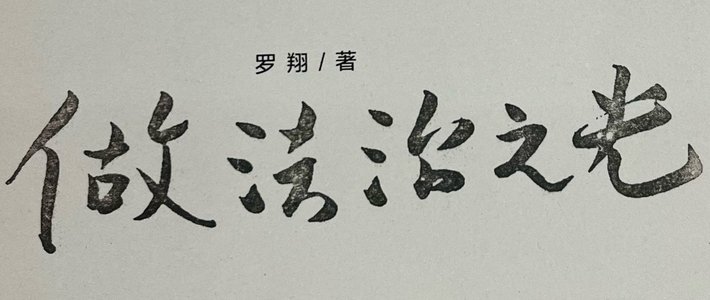 罗翔/著
做法治之光